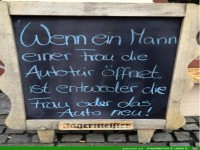 Wenn ein Mann
einer Frau die
Autotür öffnet,
ist entweder die
Frau oder das
Auto neu!
Jägermeister